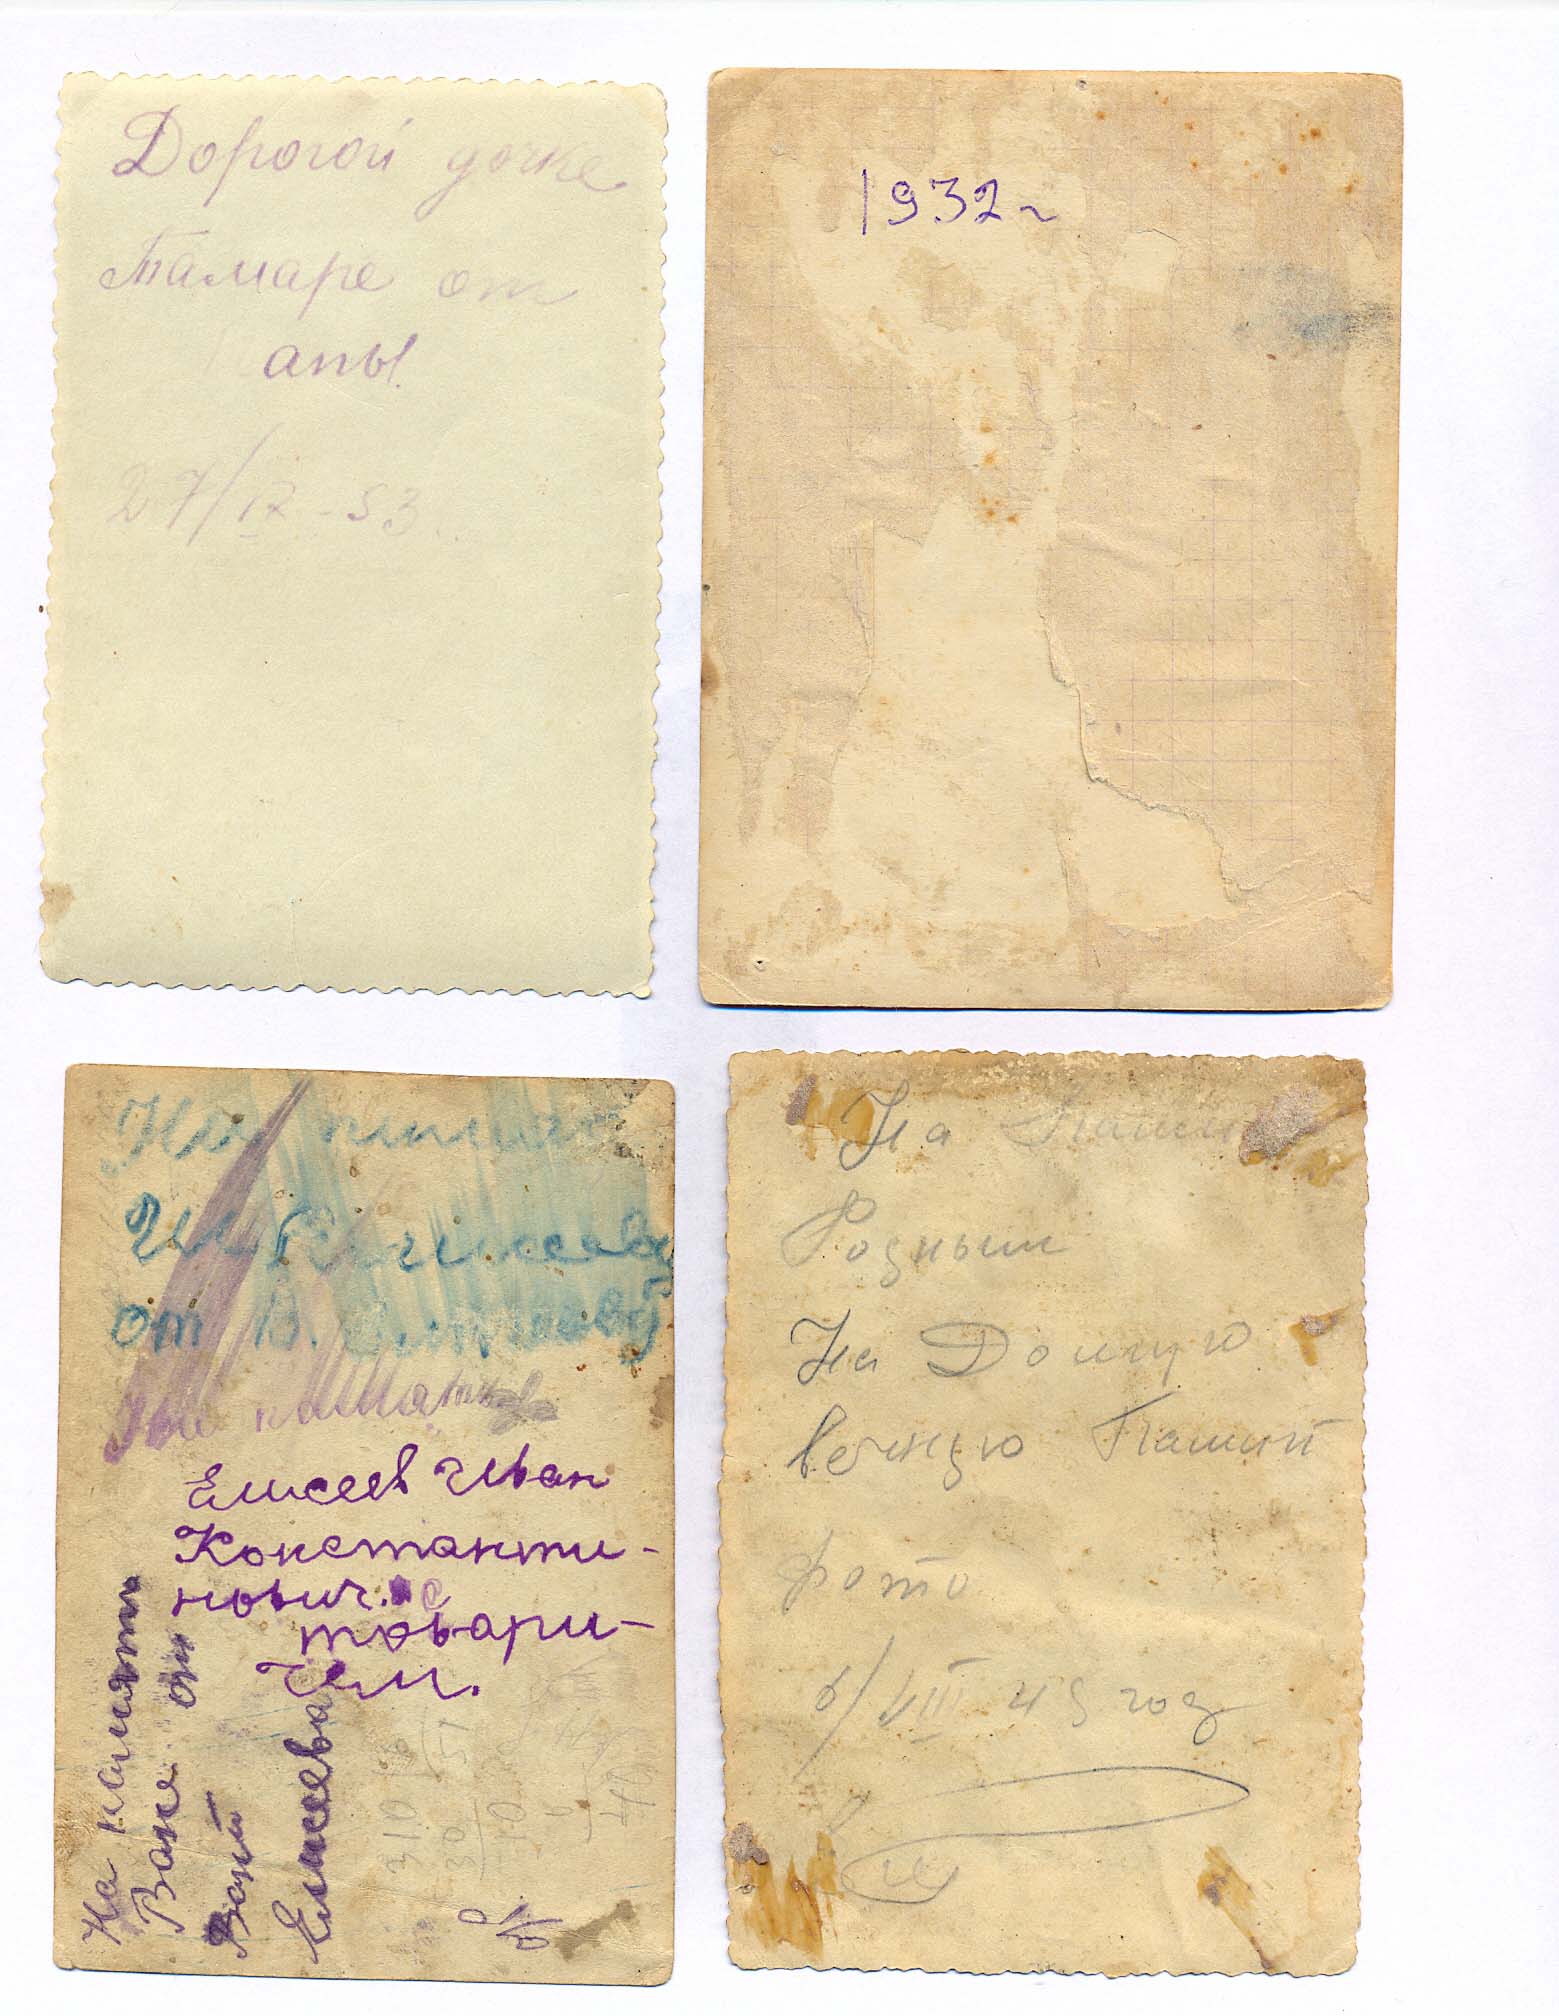 Дорогой дочке
Тамаре от
апы.
27/IX-53.
1932г
На
от В.
Елисеев Иван
Константи-
нович. с
товари-
щем.
На память
Ване от
Вани
Елисеева
310
30
51
10
40
На
Родным
На Долгую
вечную Памить
фото
6/VIII 49 год